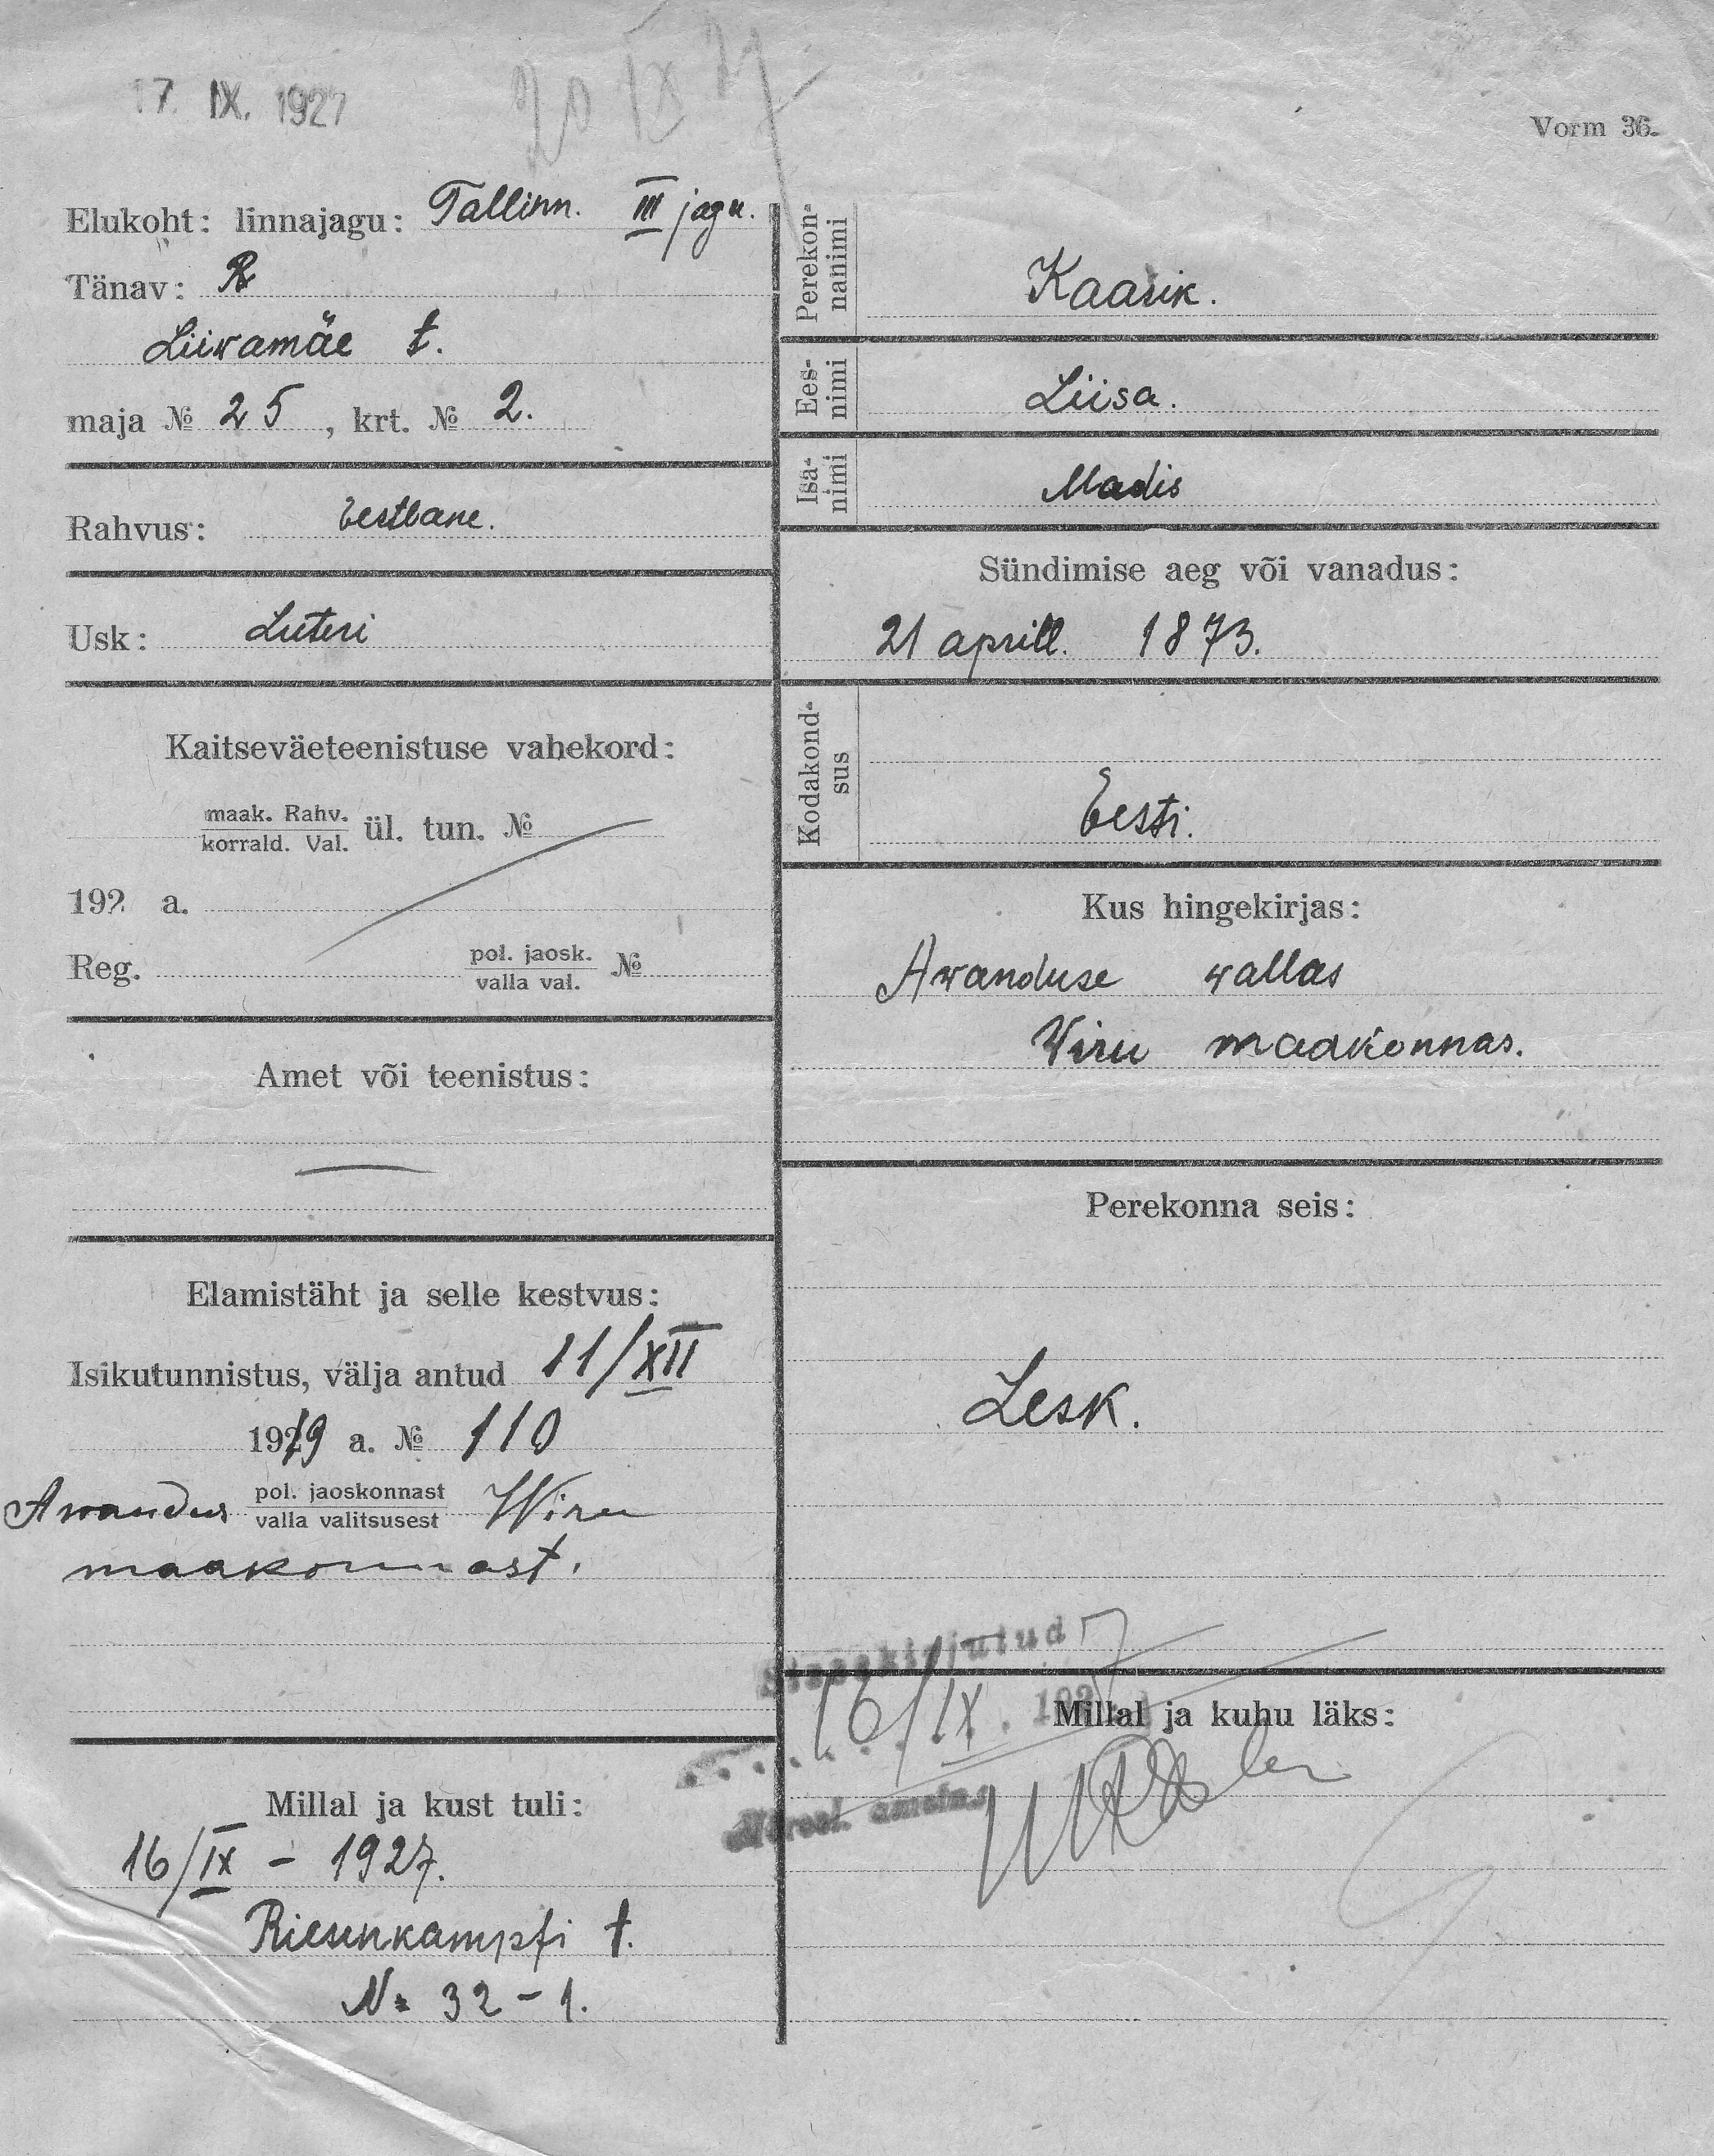 17. IX. 1927
20 IX 27
Vorm 36.
Elukoht: linnajagu: Tallinn. III jagu.
Tänav: R
Liiwamäe t.
maja № 25, krt. № 2.
Rahvus: Eestlane.
Usk: Luteri
Kaitseväeteenistuse vahekord:
maak. Rahv.
korrald. Val. ül. tun. №
192 a.
Reg. pol. jaosk.
valla val. №
Amet või teenistus:
Elamistäht ja selle kestvus:
Isikutunnistus, välja antud 11/XII
1919 a. № 110
Awanduse pol. jaoskonnast
valla valitsusest Wiru
maakonnast.
Millal ja kust tuli:
16/IX – 1927.
Riesenkampfi t.
N= 32 – 1.
Perekon-
nanimi Kaarik.
Ees-
nimi Liisa.
Isa-
nimi Madis
Sündimise aeg või vanadus:
21 aprill. 1873.
Kodakond-
sus Eesti.
Kus hingekirjas:
Awanduse wallas
Wiru maakonnas.
Perekonna seis:
Lesk.
Sissekirjutud
16/IX. 1927
Millal ja kuhu läks: